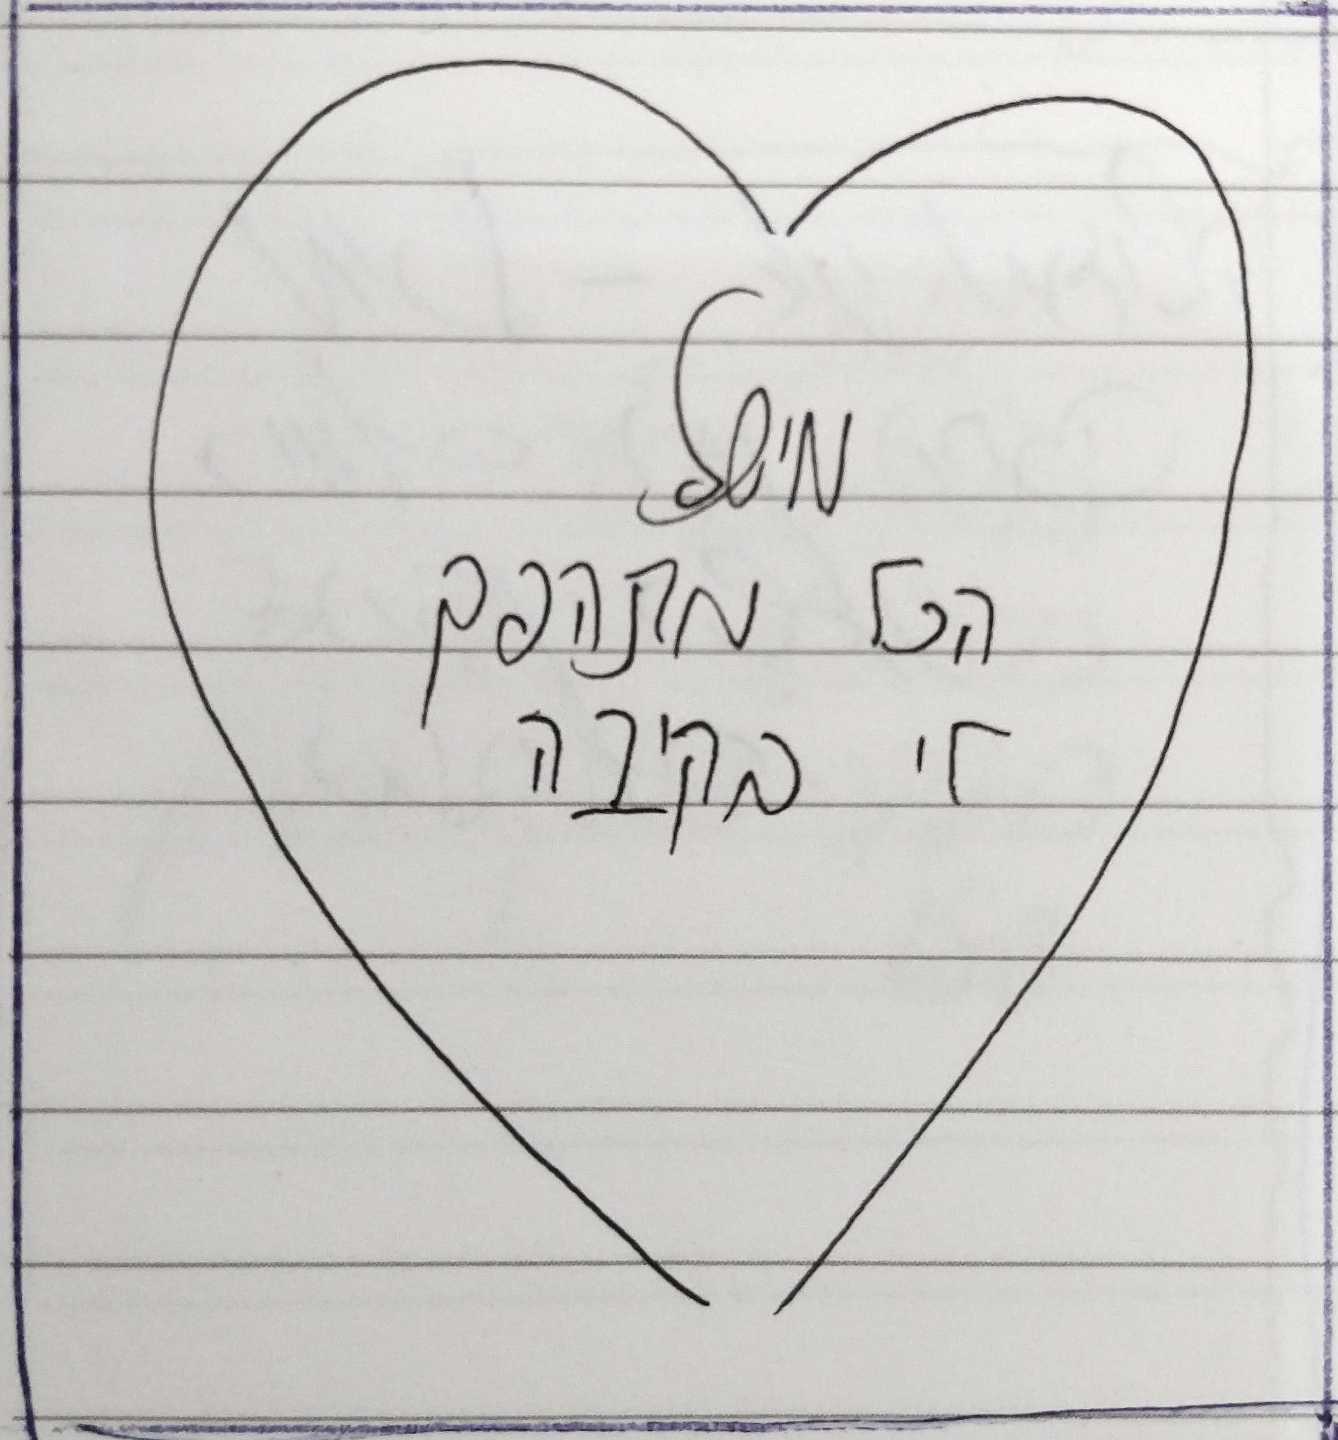 מישל
הכל מתהפך
לי בקיבה